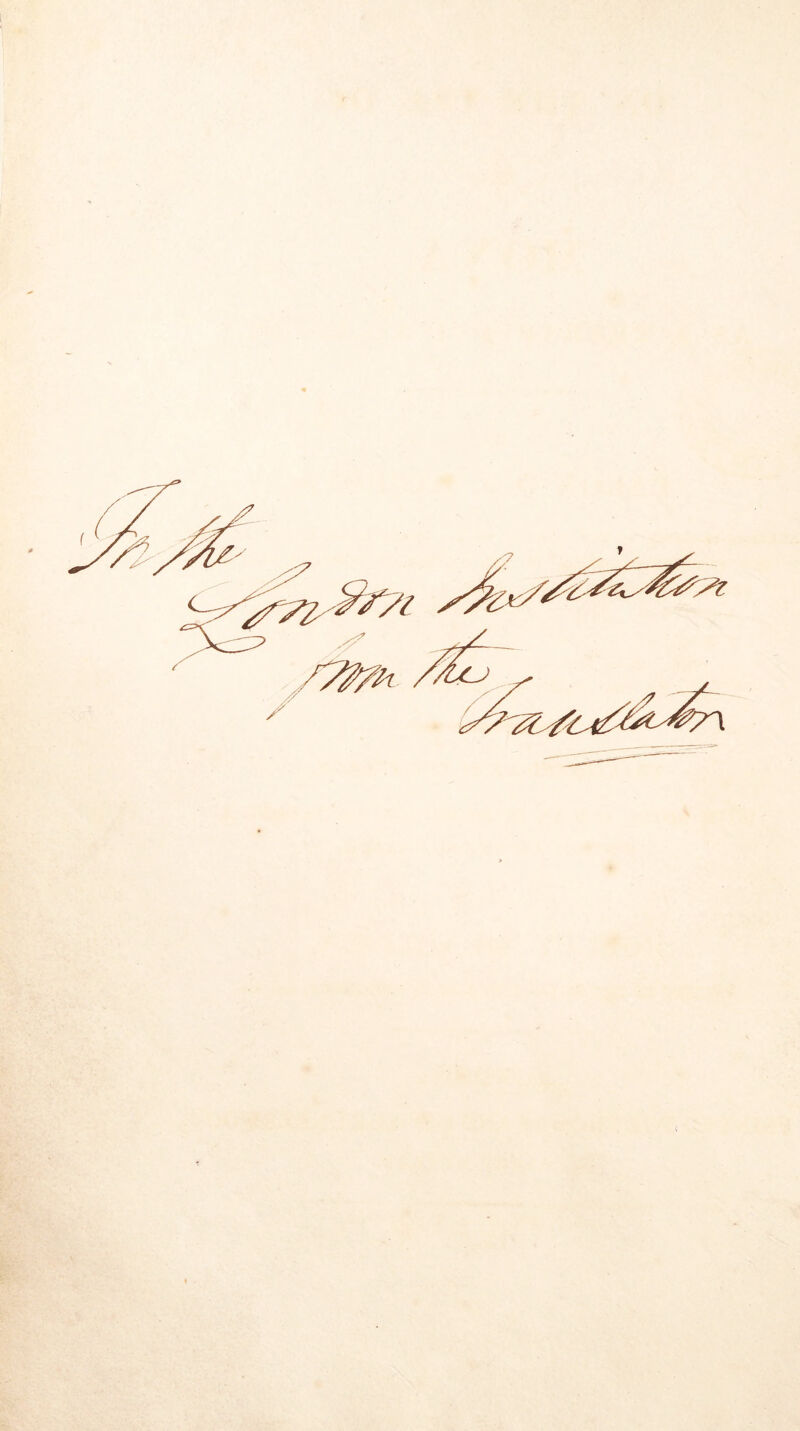 To the
London Institution
from the
Translator